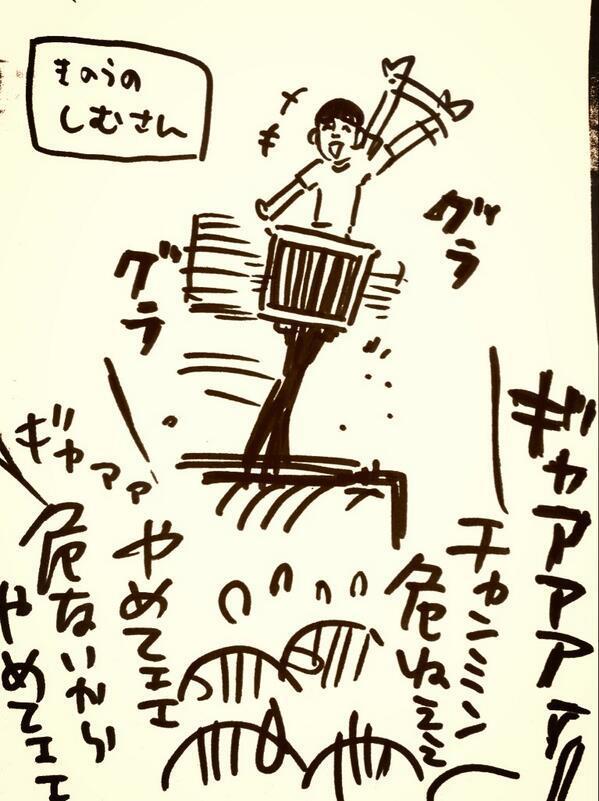 きのうの
しむさん
グラ
グラ
ギャアアアァ
チャンミン
危ねええ
やめてエエ
ギャァァ
危ないから
やめてエエ